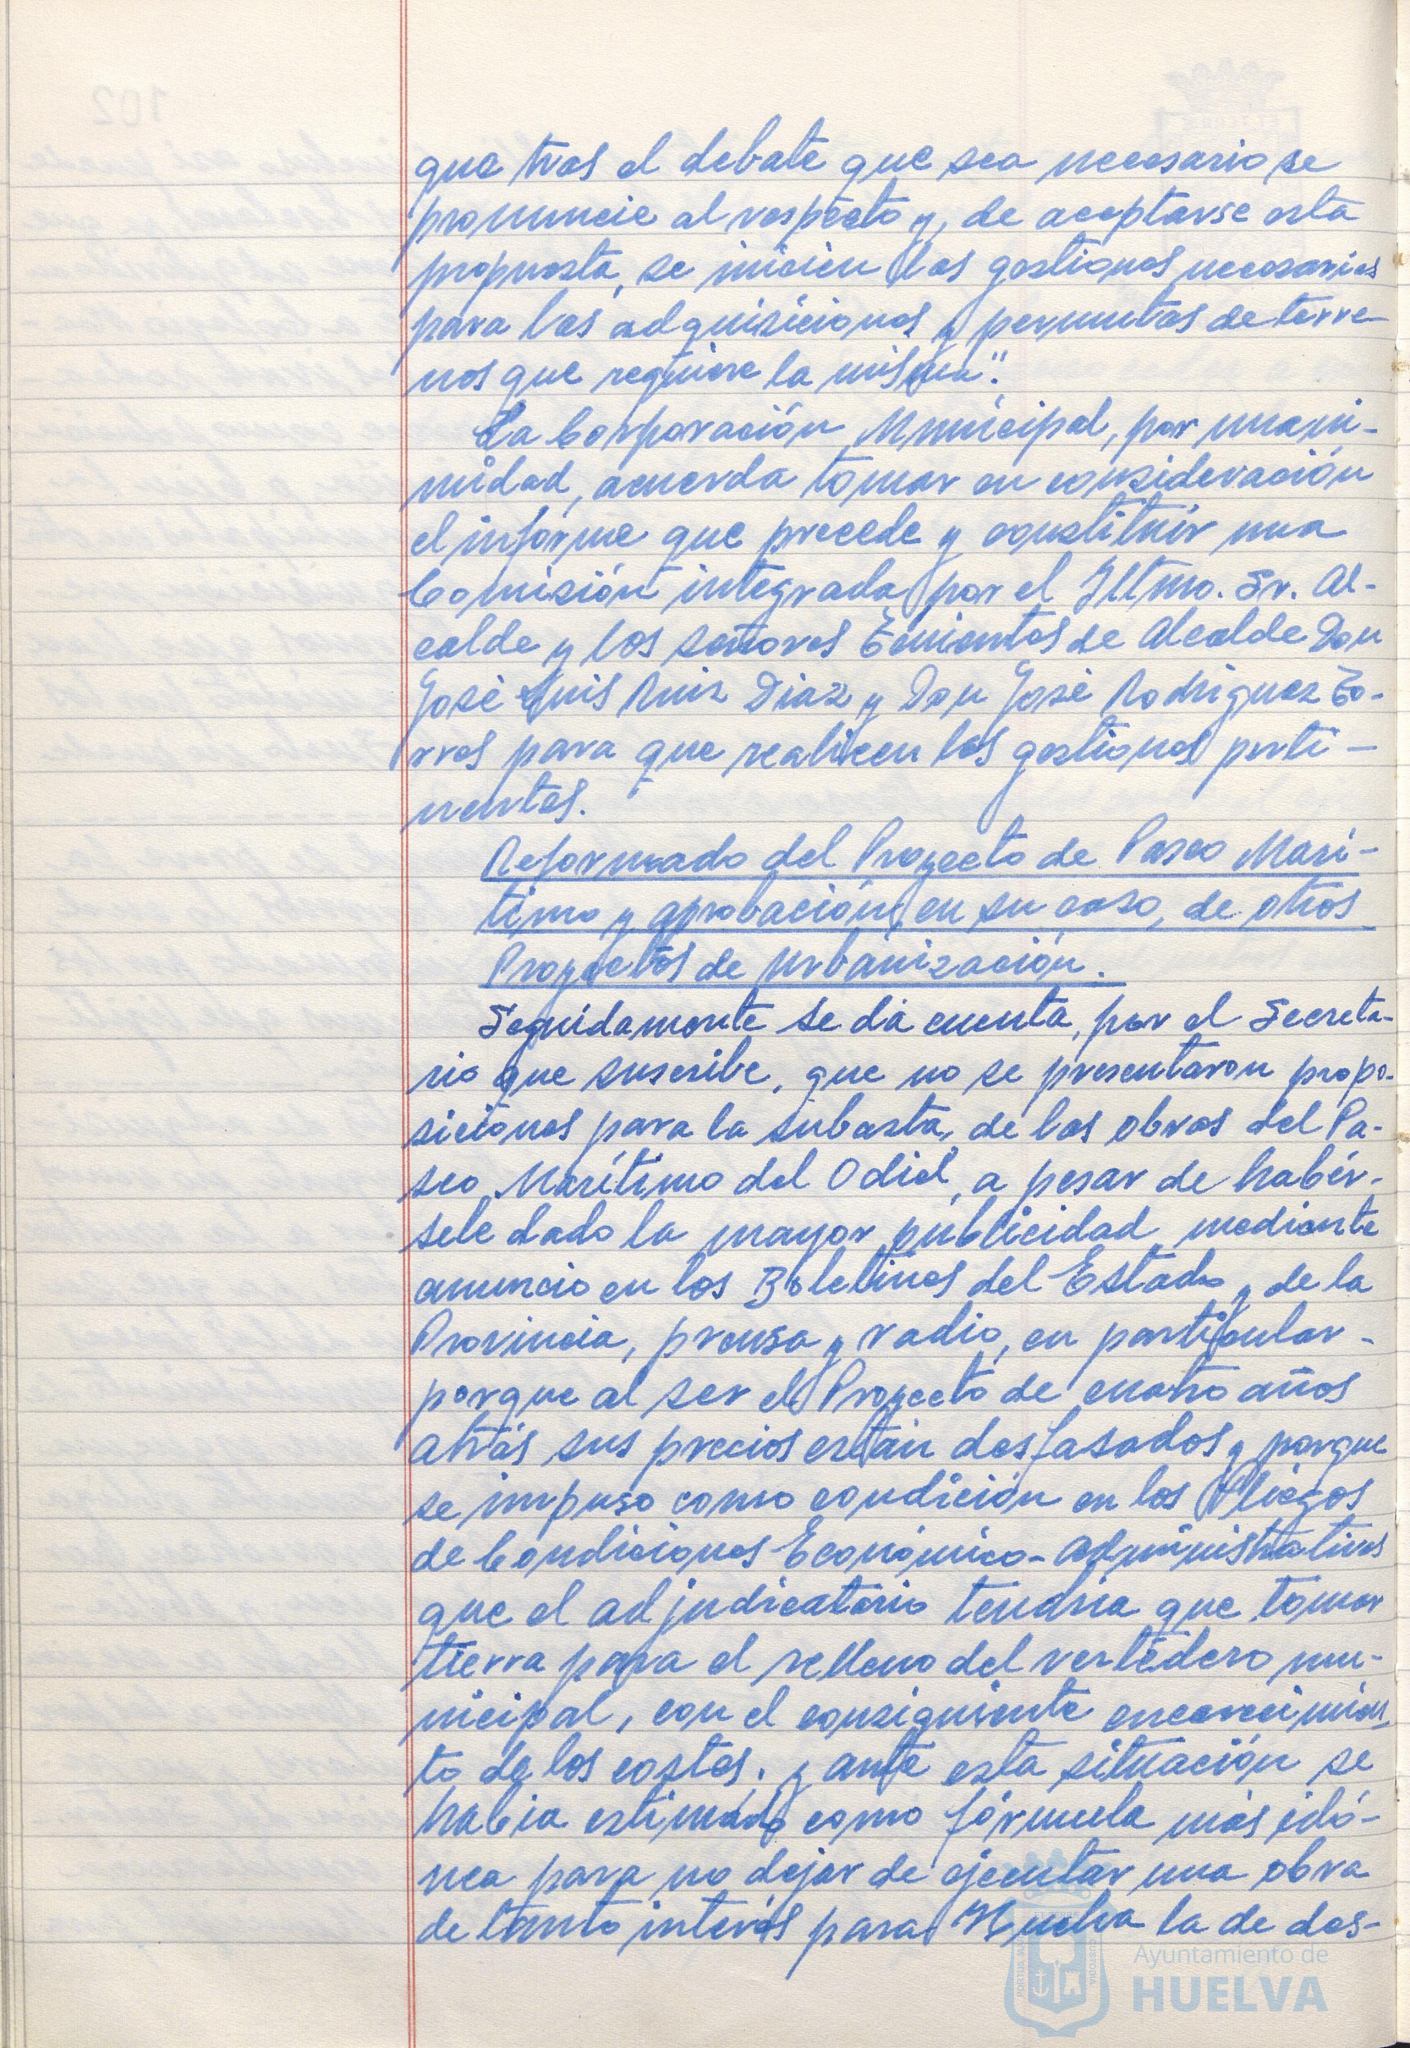 que tras el debate que sea necesario se
pronuncie al respecto y, de aceptarse esta
propuesta, se inicien las gestiones necesarias
para las adquisiciones y permutas de terre-
nos que requiere la misma".
La Corporación Municipal, por unani-
midad, acuerda tomar en consideración
el informe que precede y constituir una
Comisión integrada por el Iltmo. Sr. Al-
calde y los señores Tenientes de Alcalde Don
José Luis Ruiz Diaz y Don José Rodriguez To-
rres para que realicen las gestiones perti-
nentes.
Reformado del Proyecto de Paseo Marí-
timo y aprobación, en su caso, de otros
Proyectos de urbanización.
Seguidamente se da cuenta, por el Secreta-
rio que suscribe, que no se presentaron propo-
siciones para la subasta, de las obras del Pa-
seo Marítimo del Odiel, a pesar de habér-
sele dado la mayor publicidad mediante
anuncio en los Boletines del Estado y de la
Provincia, prensa y radio, en particular-
porque al ser el Proyecto de cuatro años
atrás sus precios están desfasados y porque
se impuso como condición en los Pliegos
de Condiciones Económico-Administrativas
que el adjudicatario tendría que tomar
tierra para el relleno del vertedero mu-
nicipal, con el consiguiente encarecimien-
to de los costes. y ante esta situación se
habia estimado como fórmula más idó-
nea para no dejar de ejecutar una obra
de tanto interés para Huelva la de des-
102
Ayuntamiento de
HUELVA